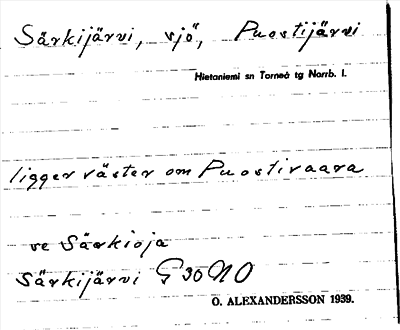 Särkijärvi, sjö, Puostijärvi
Hietaniemi sn Torneå tg Norrb. l.
ligger väster om Puostivaara
se Särkioja
Särkijärvi G 30 NO
O. ALEXANDERSSON 1939.